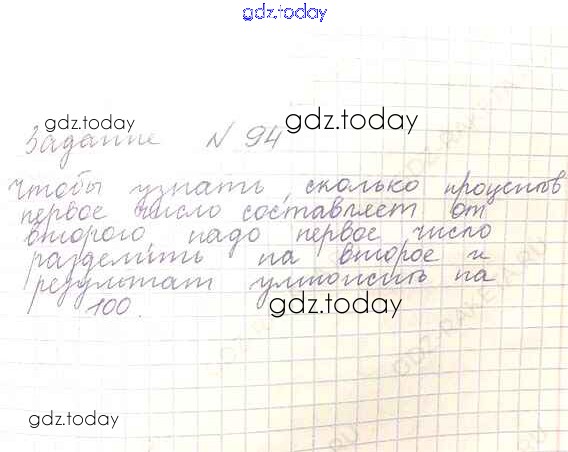 gdz.today
gdz.today
gdz.today
Задание N 94
Чтобы узнать, сколько процентов
первое число составляет от
второго надо первое число
разделить на второе и
результат умножить на
100.
gdz.today
gdz.today